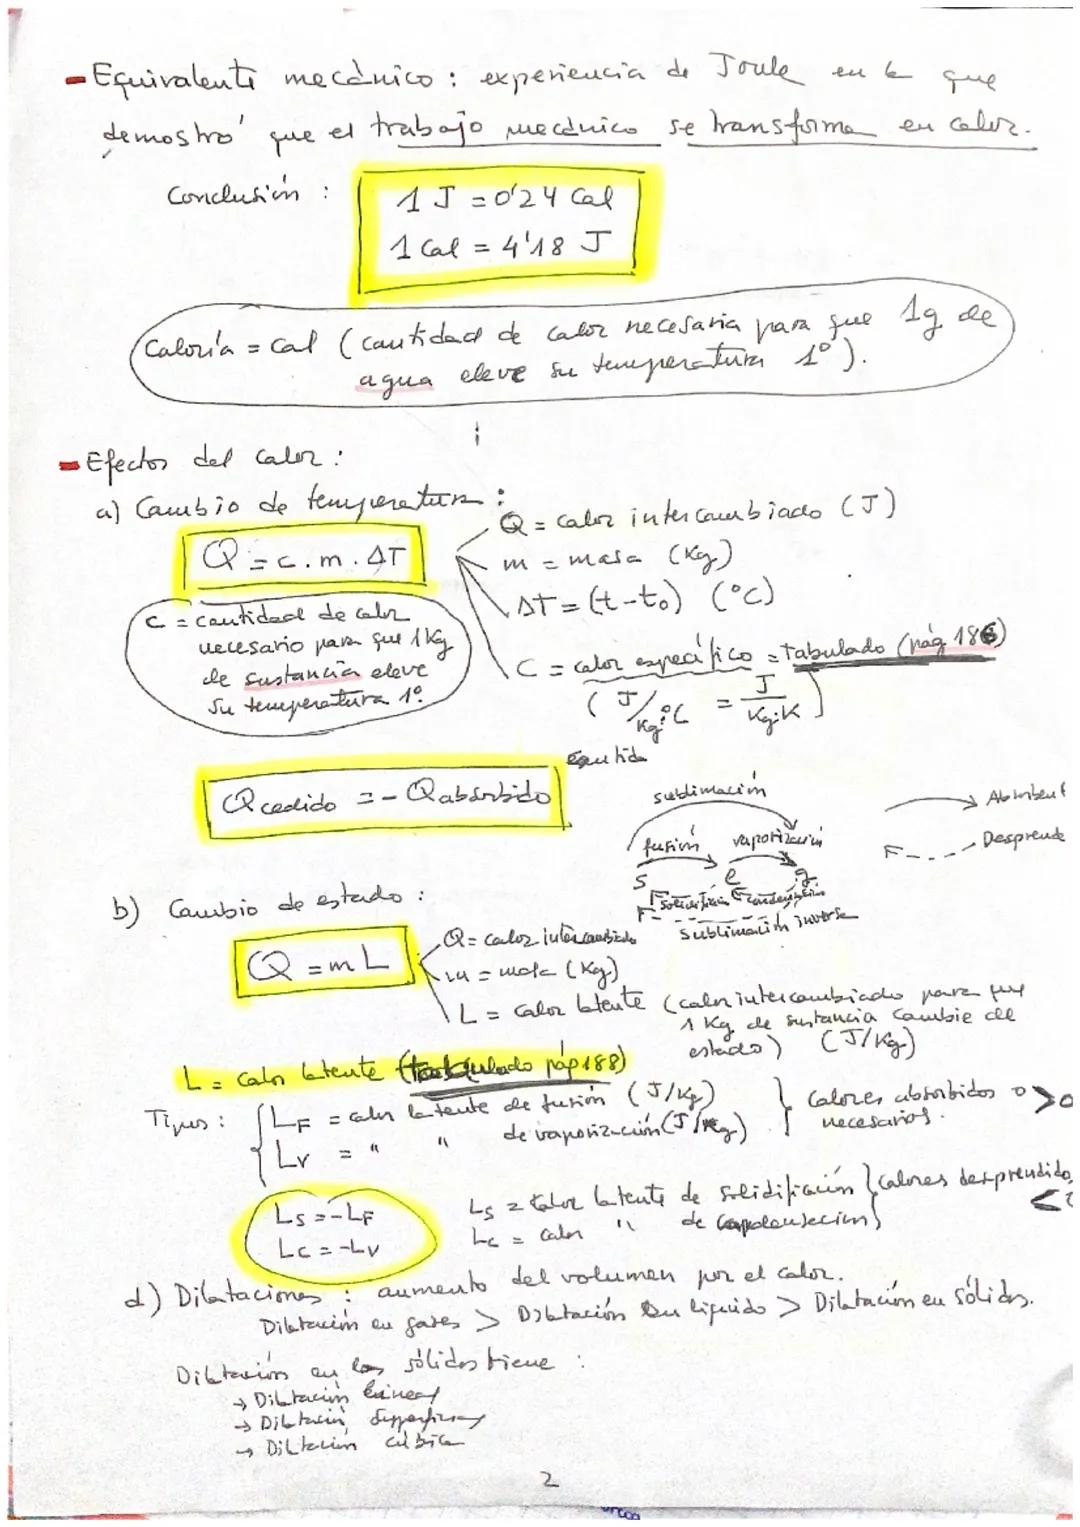 - Equivalente mecánico: experiencia de Joule en la que
demostró que el trabajo mecánico se transforma en calor.
Conclusión :
1 J = 0'24 Cal
1 Cal = 4'18 J
Caloría = cal (cantidad de calor necesaria para que 1g de
agua eleve su temperatura 1º).
- Efectos del calor:
a) Cambio de temperatura:
Q = c.m.ΔT
Q = calor intercambiado (J)
m = masa (Kg)
ΔT = (t-t₀) (°C)
C = calor específico = Tabulado (pág 186)
(J/Kg.°C = J/Kg.K)
C = cantidad de calor
necesario para que 1 Kg
de sustancia eleve
su temperatura 1º.
Q cedido = - Q absorbido
sublimación
fusión vaporización
s e g
solidificación condensación
sublimación inversa
Absorben
Desprende
b) Cambio de estado :
Q = m L
Q = calor intercambiado
m = masa (Kg)
L = calor latente (calor intercambiado para que
1 Kg de sustancia cambie de
estado) (J/Kg)
L = calor latente (tabulado pág 188)
Tipos : LF = calor latente de fusión (J/Kg)
Lv = " " de vaporización (J/Kg)
Calores absorbidos o >0
necesarios.
Ls = -LF
Lc = -Lv
Ls = Calor latente de solidificación
Lc = calor " de condensación
Calores desprendidos
<0
d) Dilataciones : aumento del volumen por el calor.
Dilatación en gases > Dilatación en líquido > Dilatación en sólidos.
Dilatación en los sólidos tiene :
→ Dilatación lineal
→ Dilatación superficial
→ Dilatación cúbica
2